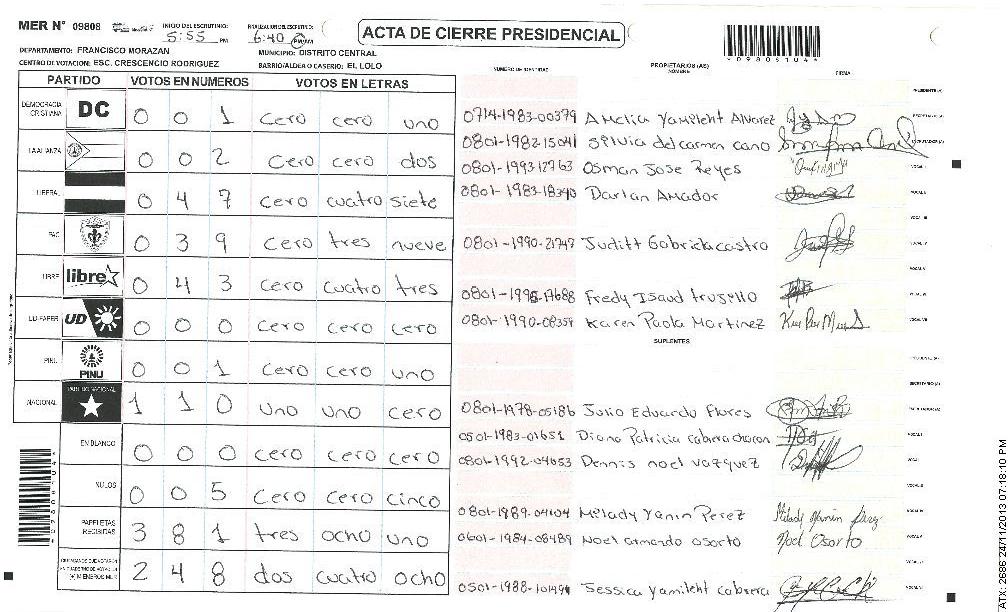 MER N° 09808 INICIO DEL ESCRUTINIO: 5:55 PM FINALIZACION DEL ESCRUTINIO: 6:40 PM/AM
ACTA DE CIERRE PRESIDENCIAL
DEPARTAMENTO: FRANCISCO MORAZAN MUNICIPIO: DISTRITO CENTRAL
CENTRO DE VOTACION: ESC. CRESCENCIO RODRIGUEZ BARRIO/ALDEA O CASERIO: EL LOLO
NUMERO DE IDENTIDAD PROPIETARIOS (AS) NOMBRE FIRMA
PARTIDO VOTOS EN NUMEROS VOTOS EN LETRAS
DEMOCRACIA CRISTIANA DC 0 0 1 cero cero uno
LA ALIANZA 0 0 2 cero cero dos
LIBERAL 0 4 7 cero cuatro siete
PAC 0 3 9 cero tres nueve
LIBRE libre 0 4 3 cero cuatro tres
UD-FAPER UD 0 0 0 cero cero cero
PINU PINU 0 0 1 cero cero uno
NACIONAL PARTIDO NACIONAL 1 1 0 uno uno cero
EN BLANCO 0 0 0 cero cero cero
NULOS 0 0 5 cero cero cinco
PAPELETAS RECIBIDAS 3 8 1 tres ocho uno
(+) MIEMBROS MER 2 4 8 dos cuatro ocho
PRESIDENTE (A)
0714-1983-00379 Amelia Yamileht Alvarez SECRETARIO (A)
0801-1982-15041 Silvia del carmen cano ESCRUTADOR (A)
0801-1993-12963 Osman Jose Reyes VOCAL I
0801-1983-18390 Darlan Amador VOCAL II
VOCAL III
0801-1990-21747 Juditt Gabriela castro VOCAL IV
VOCAL V
0801-1995-17688 Fredy Isaud trujillo VOCAL VI
0801-1990-08359 Karen Paola Martinez VOCAL VII
SUPLENTES
PRESIDENTE (A)
SECRETARIO (A)
0801-1978-05186 Julio Eduardo Flores ESCRUTADOR (A)
0501-1983-01651 Diana Patricia cabrera VOCAL I
0801-1992-04653 Dennis noel vazquez VOCAL II
VOCAL III
0801-1989-04104 Milady Yanin Perez VOCAL IV
0601-1984-08489 Noel armando osorto Noel Osorto VOCAL V
VOCAL VI
Jessica Yamileht cabrera VOCAL VII
ATX 2686 24/11/2013 07:18:10 PM